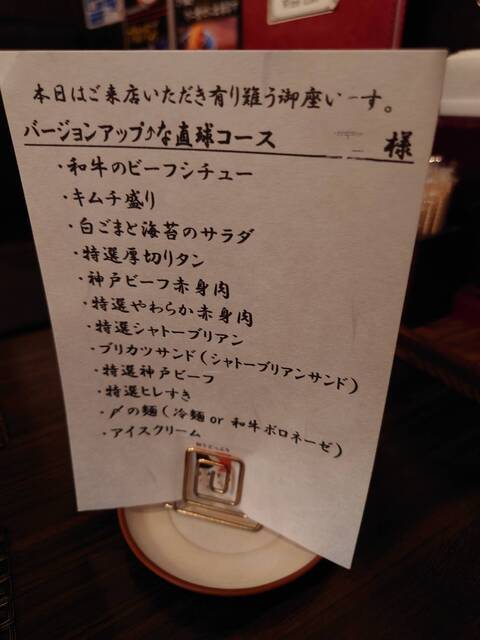 本日はご来店いただき有り難う御座います。
バージョンアップ⤴な直球コース 様
・和牛のビーフシチュー
・キムチ盛り
・白ごまと海苔のサラダ
・特選厚切りタン
・神戸ビーフ赤身肉
・特選やわらか赤身肉
・特選シャトーブリアン
・ブリカツサンド(シャトーブリアンサンド)
・特選神戸ビーフ
・特選ヒレすき
・〆の麺(冷麺 or 和牛ボロネーゼ)
・アイスクリーム